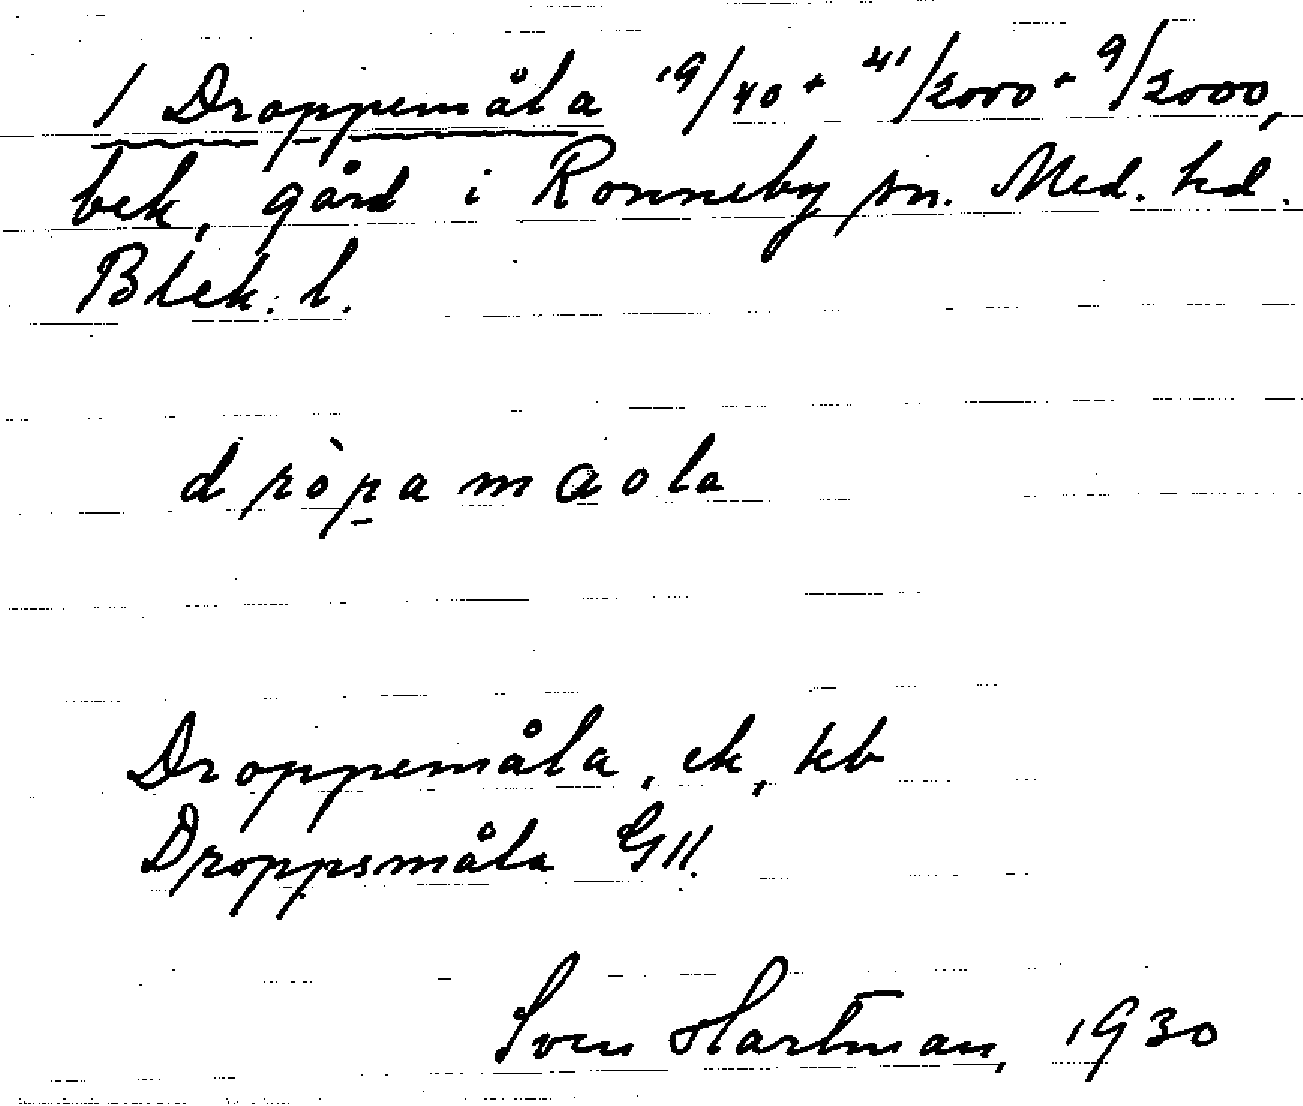 1 Droppemåla 19/40 + 41/2000 + 9/2000,
bek. gård i Ronneby sn. Med. hd.
Blek. l.
dròpamaola
Droppemåla, ek, kb
Droppsmåla GK
Sven Hartman, 1930